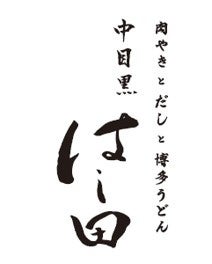 肉やきとだしと博多うどん
中目黒
はし田